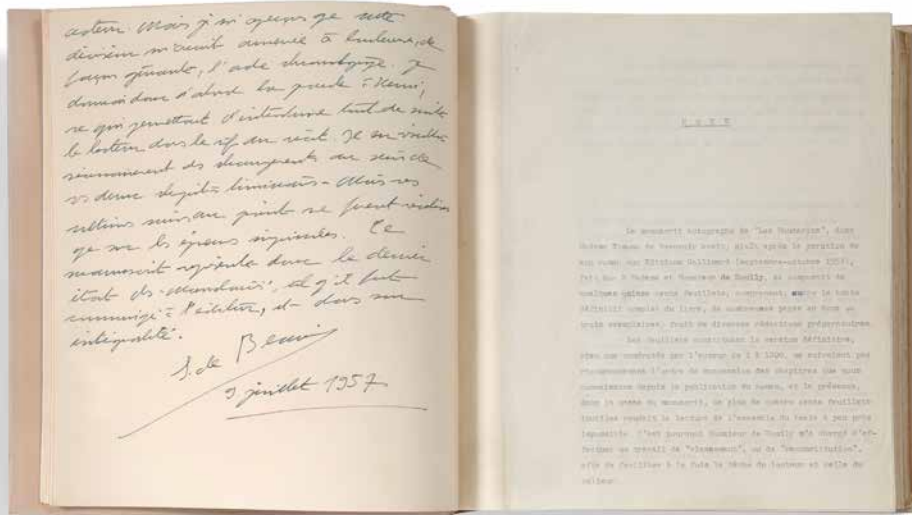 lecteur. Mais je m'aperçus que cette
division m'avait amenée à bouleverser, de
façon gênante, l'ordre chronologique. Je
donnai donc d'abord la parole à Henri,
ce qui permettait d'introduire tout de suite
le lecteur dans le vif du récit. Il en résulta
nécessairement des changements au sein de
ces deux chapitres liminaires. Mais ces
ultimes mises au point ne furent réalisées
que sur les épreuves imprimées. Ce
manuscrit représente donc le dernier
état des "Mandarins", tel qu'il fut
communiqué à l'éditeur, et dans son
intégralité.
S. de Beauvoir
9 juillet 1957
NOTE
Le manuscrit autographe de "Les Mandarins", dont
Madame Simone de Beauvoir avait, sitôt après la parution de
son roman aux Editions Gallimard (septembre-octobre 1954),
fait don à Madame et Monsieur de comportait
quelques quinze cents feuillets, comprenant, outre le texte
définitif complet du livre, de nombreuses pages en deux ou
trois exemplaires, fruit de diverses rédactions préparatoires.
Les feuillets constituant la version définitive,
bien que numérotés par l'auteur de 1 à 1200, ne suivaient pas
rigoureusement l'ordre de succession des chapitres que nous
connaissons depuis la publication du roman, et la présence,
dans la masse du manuscrit, de plus de quatre cents feuillets
inutiles rendait la lecture de l'ensemble du texte à peu près
impossible. C'est pourquoi Monsieur de m'a chargé d'ef-
fectuer un travail de "classement", ou de "reconstitution",
afin de faciliter à la fois la tâche du lecteur et celle du
relieur.